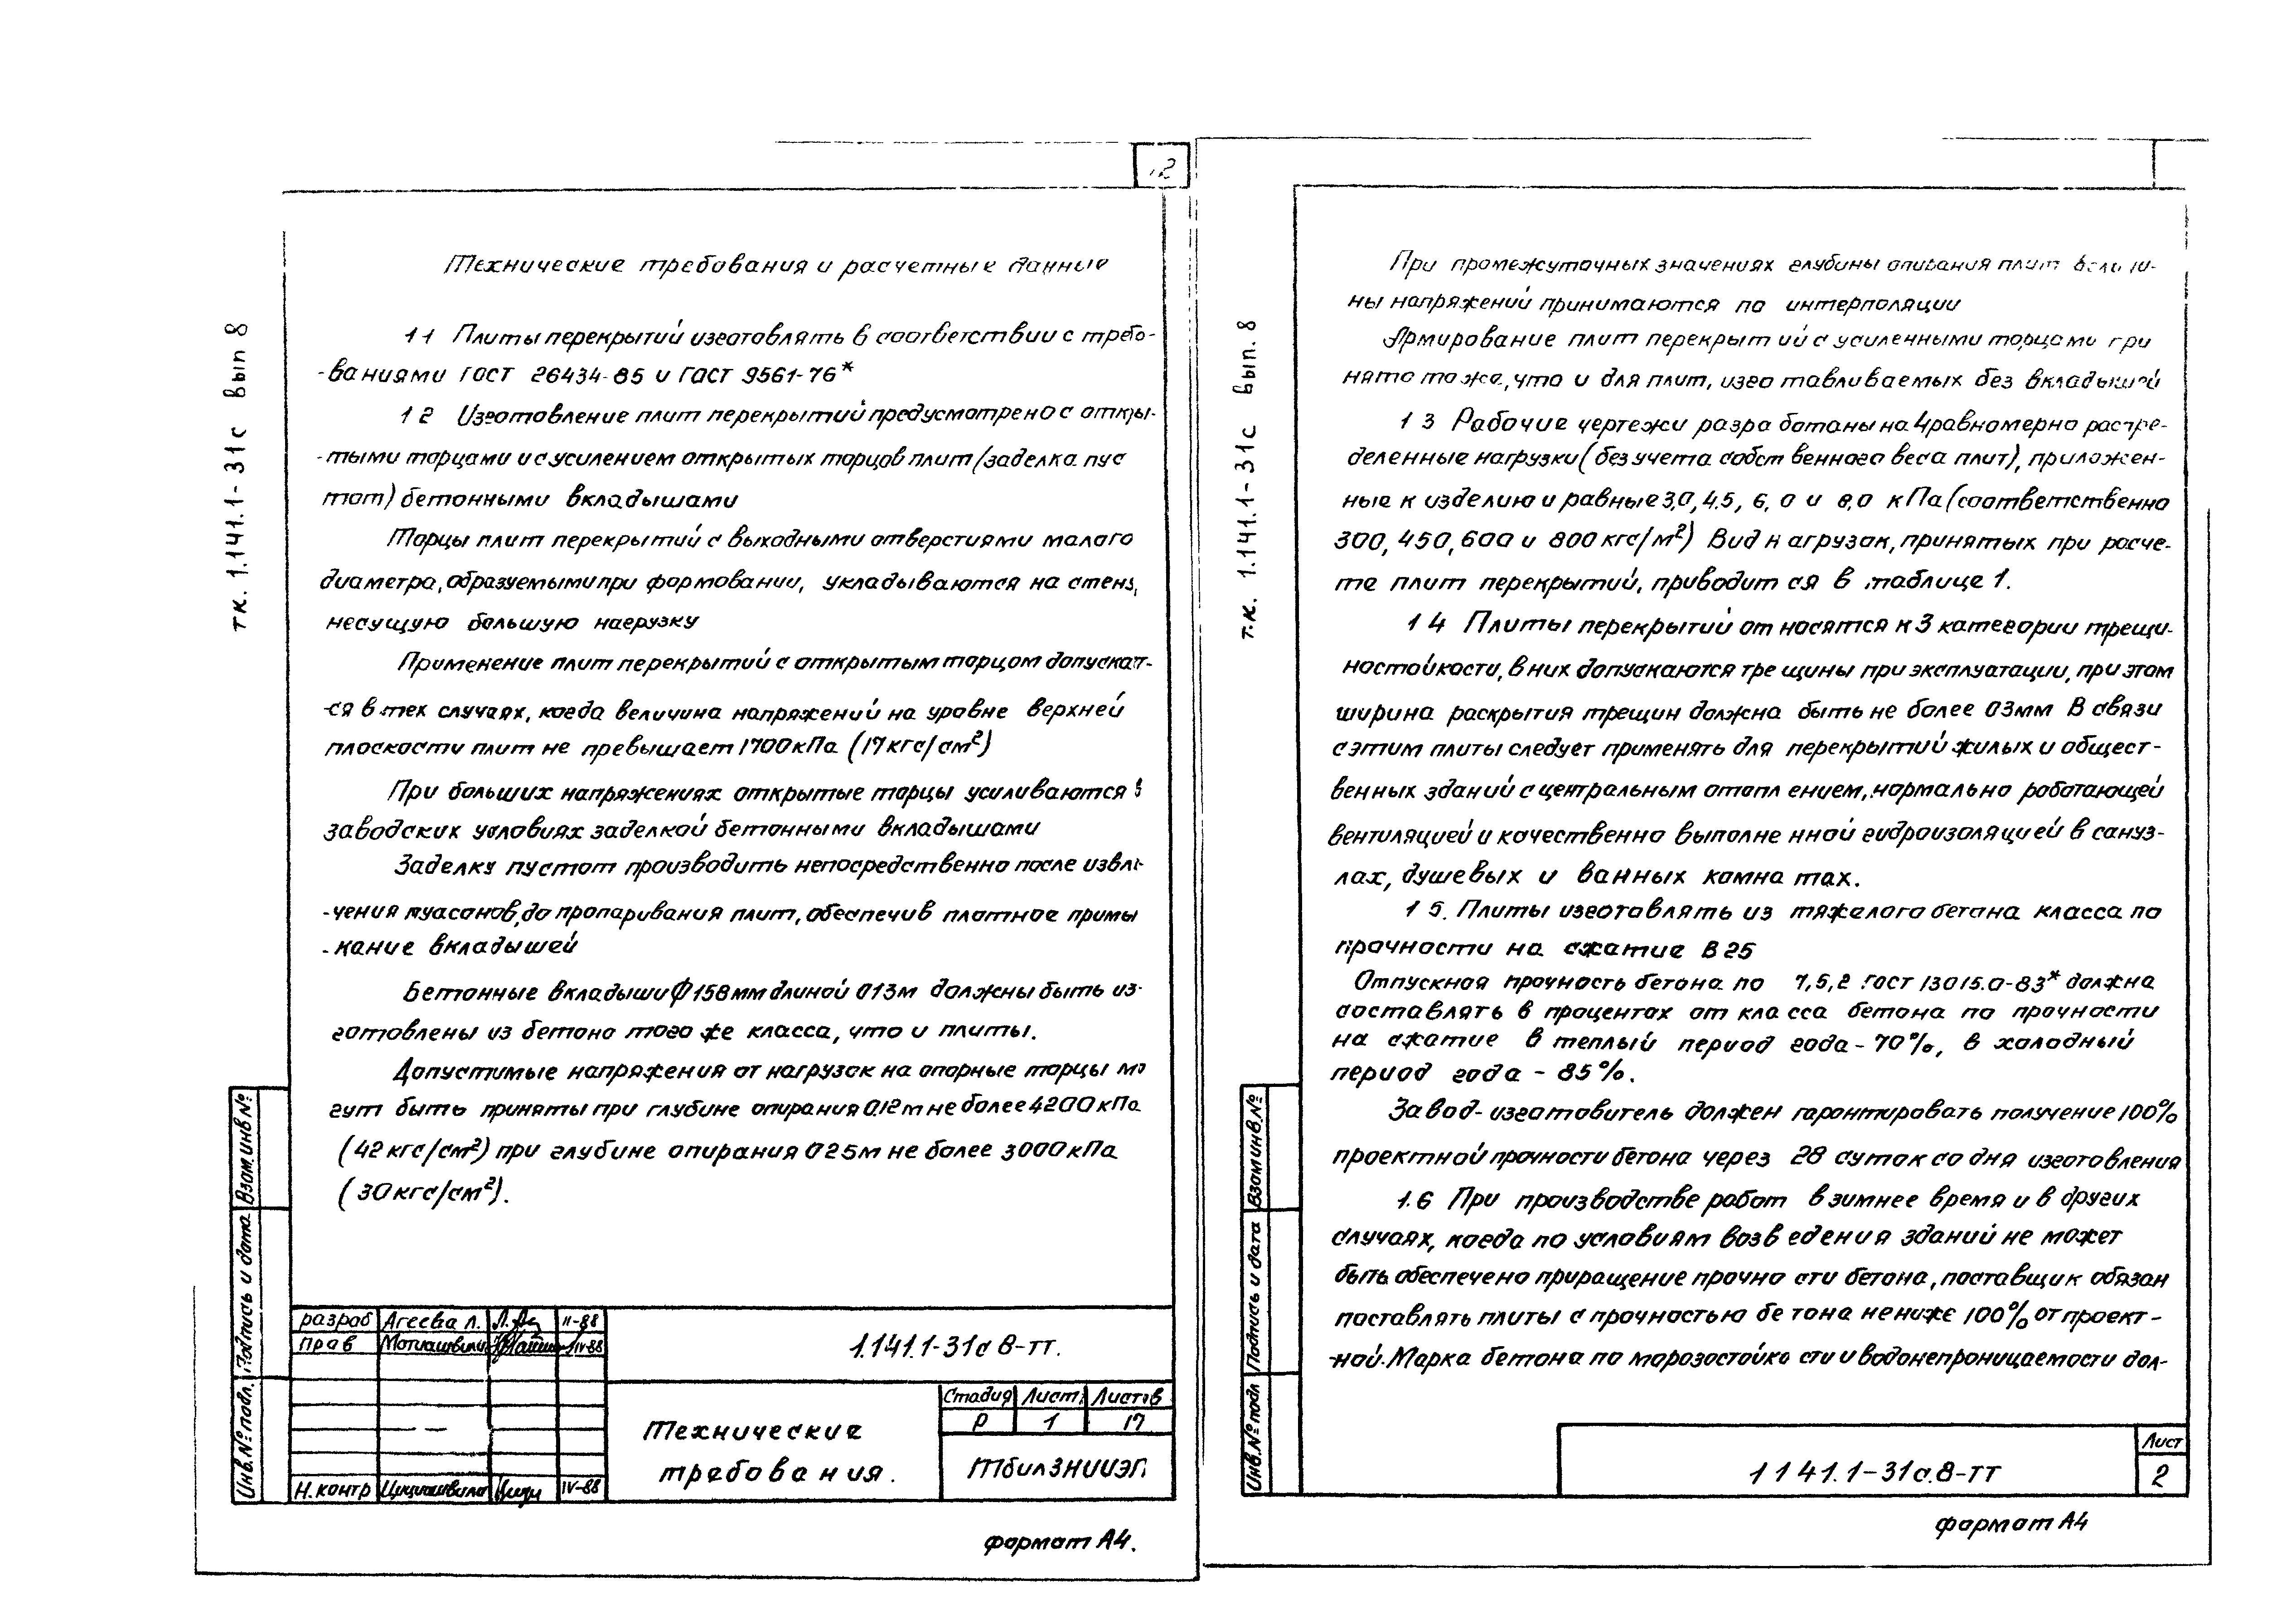 2
Технические требования и расчетные данные
1 1 Плиты перекрытий изготовлять в соответствии с требо-
-ваниями ГОСТ 26434-85 и ГОСТ 9561-76*
1 2 Изготовление плит перекрытий предусмотрено с откры-
-тыми торцами и с усилением открытых торцов плит (заделка пус
тот) бетонными вкладышами
Торцы плит перекрытий с выходными отверстиями малого
диаметра, образуемыми при формовании, укладываются на стену,
несущую большую нагрузку
Применение плит перекрытий с открытым торцом допускает-
-ся в тех случаях, когда величина напряжений на уровне верхней
плоскости плит не превышает 1700 кПа (17 кгс/см²)
При больших напряжениях открытые торцы усиливаются в
заводских условиях заделкой бетонными вкладышами
Заделку пустот производить непосредственно после извле-
-чения пуасонов, до пропаривания плит, обеспечив плотное примы
-кание вкладышей
Бетонные вкладыши ф 158 мм длиной 0 13 м должны быть из-
готовлены из бетона того же класса, что и плиты.
Допустимые напряжения от нагрузок на опорные торцы мо
гут быть приняты при глубине опирания 0,12 м не более 4200 кПа
(42 кгс/см²) при глубине опирания 0 25 м не более 3000 кПа
(30 кгс/см²).
т.к. 1.141.1-31с вып 8
Взам.инв.№
Подпись и дата
Инв.№ подл.
разраб Агеева Л. II-88
пров Мотиашвили IV-88
Н.контр Цициашвили IV-88
1.141.1-31с 8-тт.
Технические
требования.
Стадия Лист Листов
Р 1 17
ТбилЗНИИЭП
формат А4.
При промежуточных значениях глубины опирания плит величи-
ны напряжений принимаются по интерполяции
Армирование плит перекрытий с усиленными торцами при
нято то же, что и для плит, изготавливаемых без вкладышей
1 3 Рабочие чертежи разработаны на 4 равномерно распре-
деленные нагрузки (без учета собственного веса плит), приложен-
ные к изделию и равные 3,0, 4.5, 6,0 и 8,0 кПа (соответственно
300, 450, 600 и 800 кгс/м²) Вид нагрузок, принятых при расче-
те плит перекрытий, приводится в таблице 1.
1 4 Плиты перекрытий относятся к 3 категории трещи-
ностойкости, в них допускаются трещины при эксплуатации, при этом
ширина раскрытия трещин должна быть не более 0 3 мм В связи
с этим плиты следует применять для перекрытий жилых и общест-
венных зданий с центральным отоплением, нормально работающей
вентиляцией и качественно выполненной гидроизоляцией в сануз-
лах, душевых и ванных комнатах.
1 5. Плиты изготовлять из тяжелого бетона класса по
прочности на сжатие В 25
Отпускная прочность бетона по 7,5,2 ГОСТ 13015.0-83* должна
составлять в процентах от класса бетона по прочности
на сжатие в теплый период года - 70%, в холодный
период года - 85%.
Завод-изготовитель должен гарантировать получение 100%
проектной прочности бетона через 28 суток со дня изготовления
1.6 При производстве работ в зимнее время и в других
случаях, когда по условиям возведения зданий не может
быть обеспечено приращение прочности бетона, поставщик обязан
поставлять плиты с прочностью бетона не ниже 100% от проект-
-ной. Марка бетона по морозостойкости и водонепроницаемости дол-
т.к. 1.141.1-31с вып. 8
Взам инв.№
Подпись и дата
Инв.№ подл
1 141.1-31с.8-тт
Лист
2
формат А4